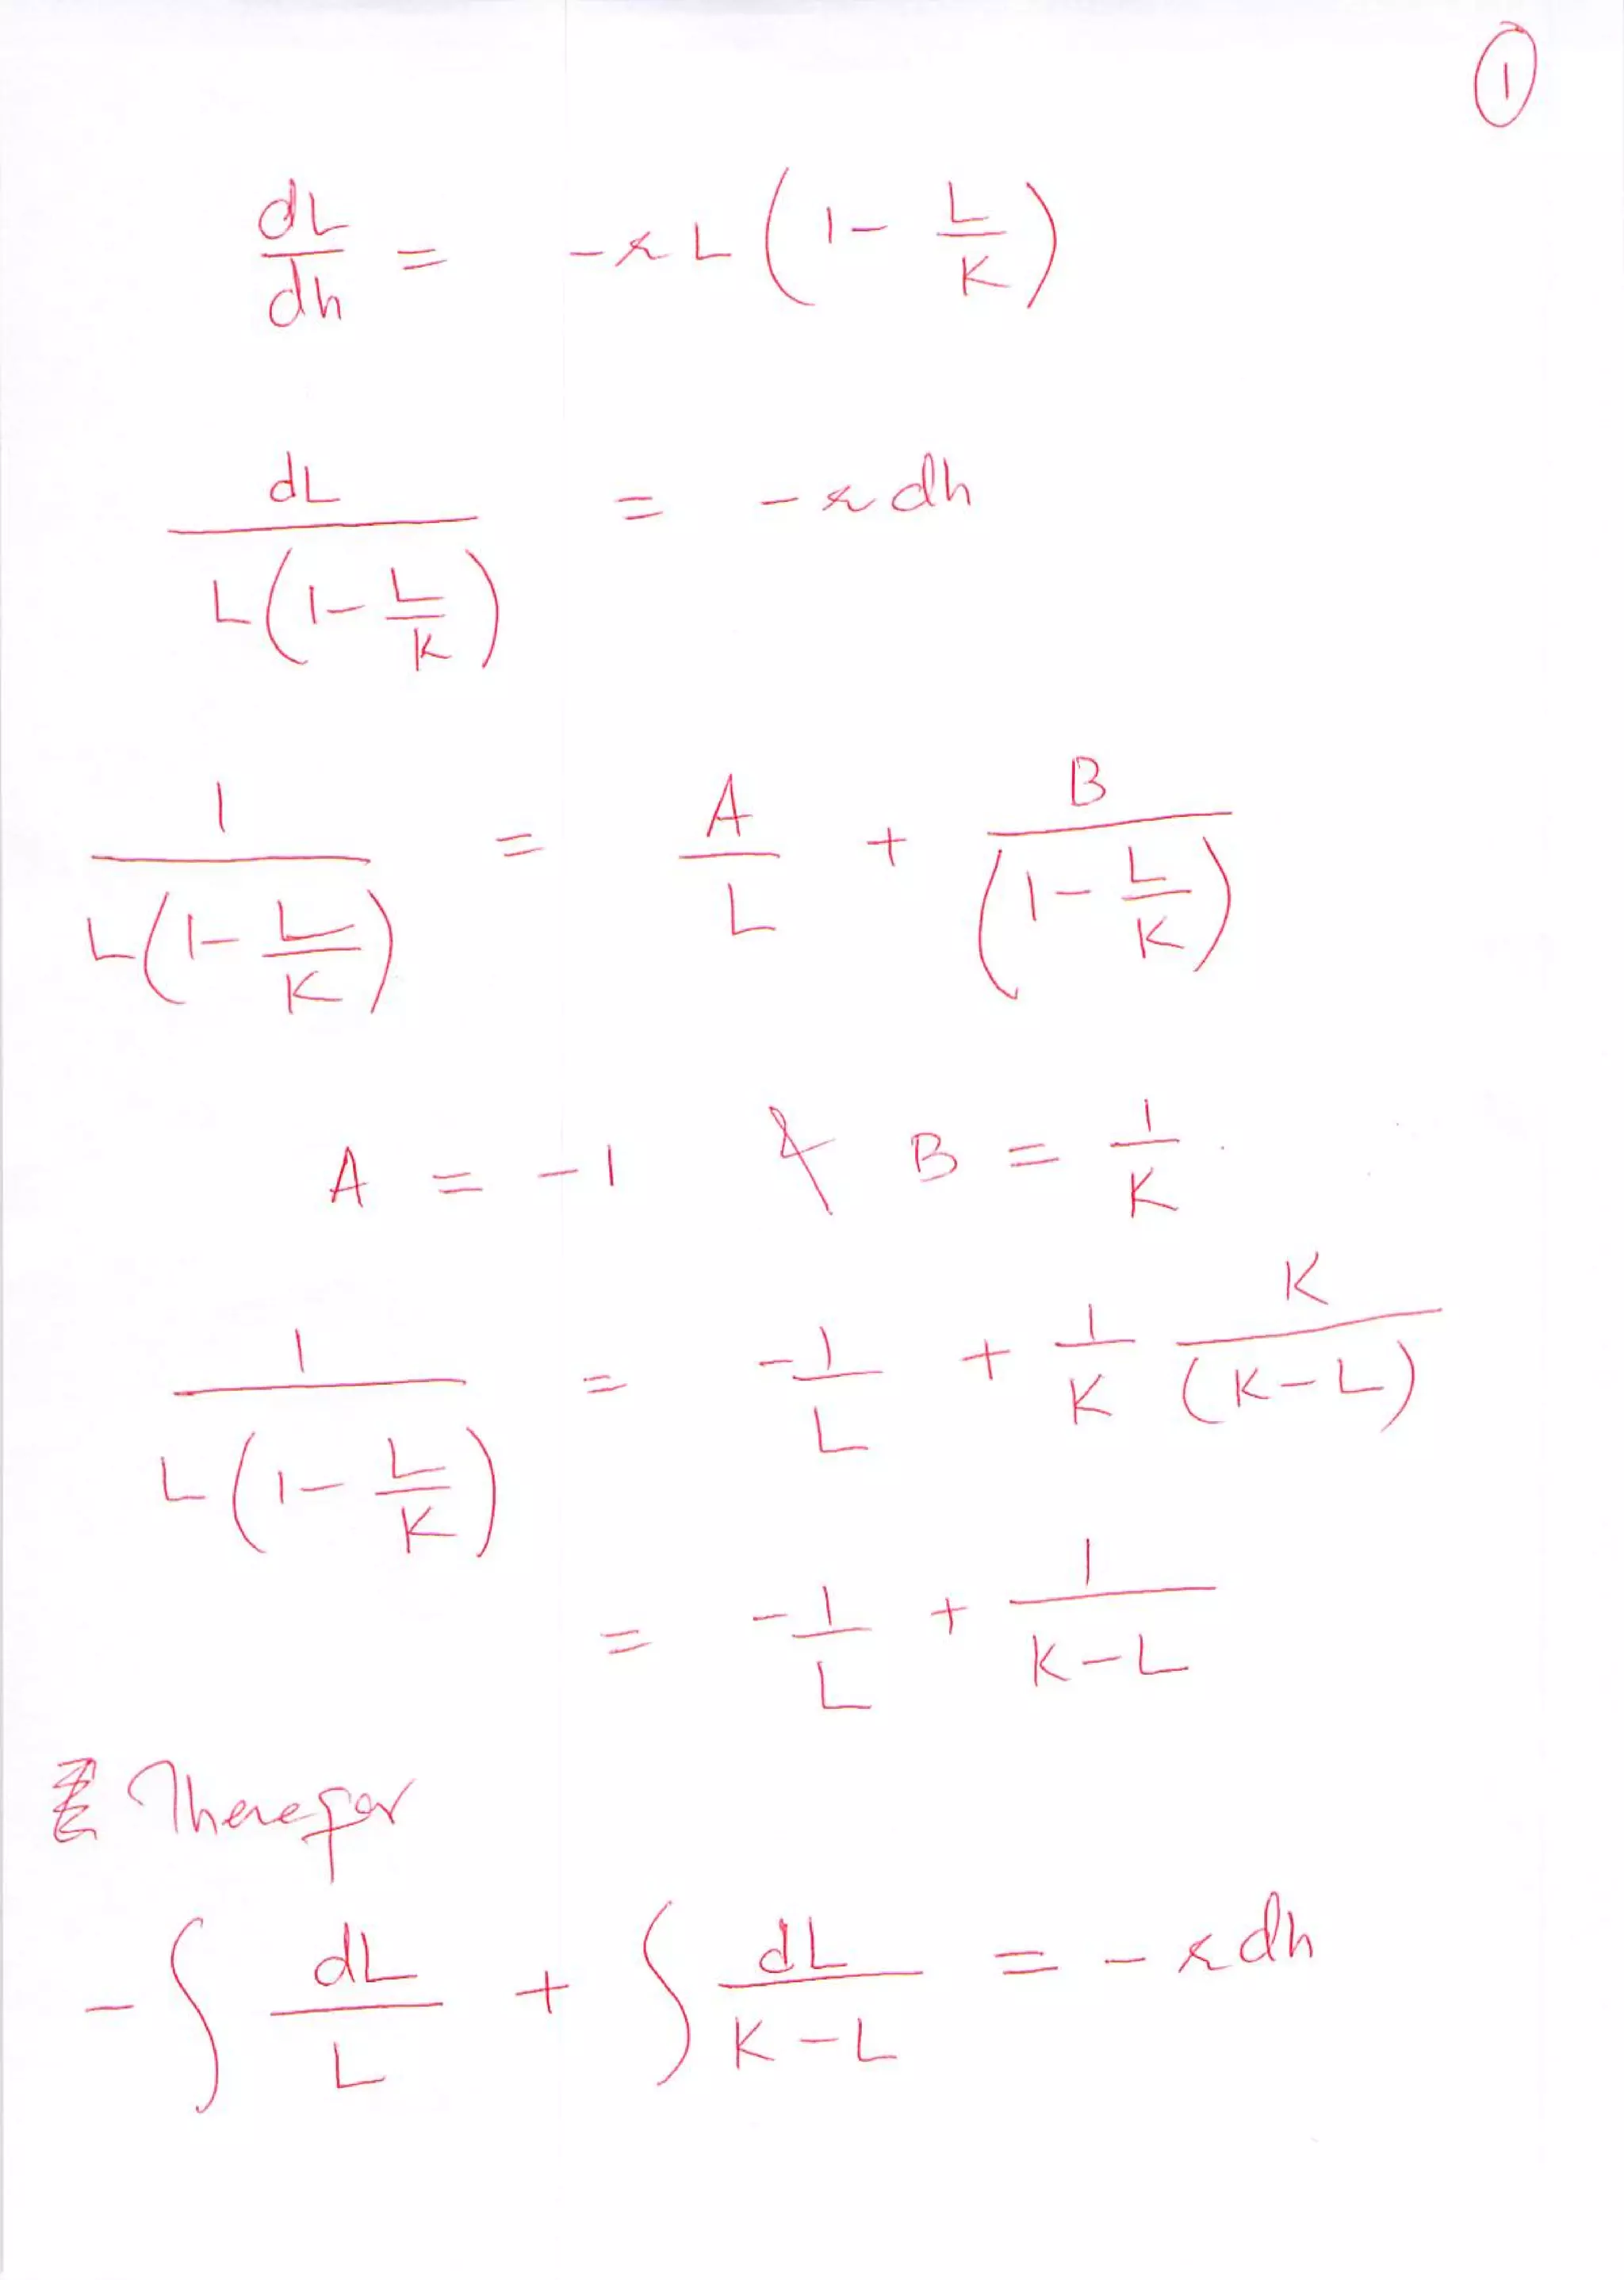 ①
dL/dh = -rL(1 - L/K)
dL / L(1 - L/K) = -r dh
1 / L(1 - L/K) = A/L + B / (1 - L/K)
A = -1 & B = 1/K.
1 / L(1 - L/K) = -1/L + 1/K K/(K-L)
= -1/L + 1/K-L
Therefor
-∫ dL/L + ∫ dL/K-L = -r dh